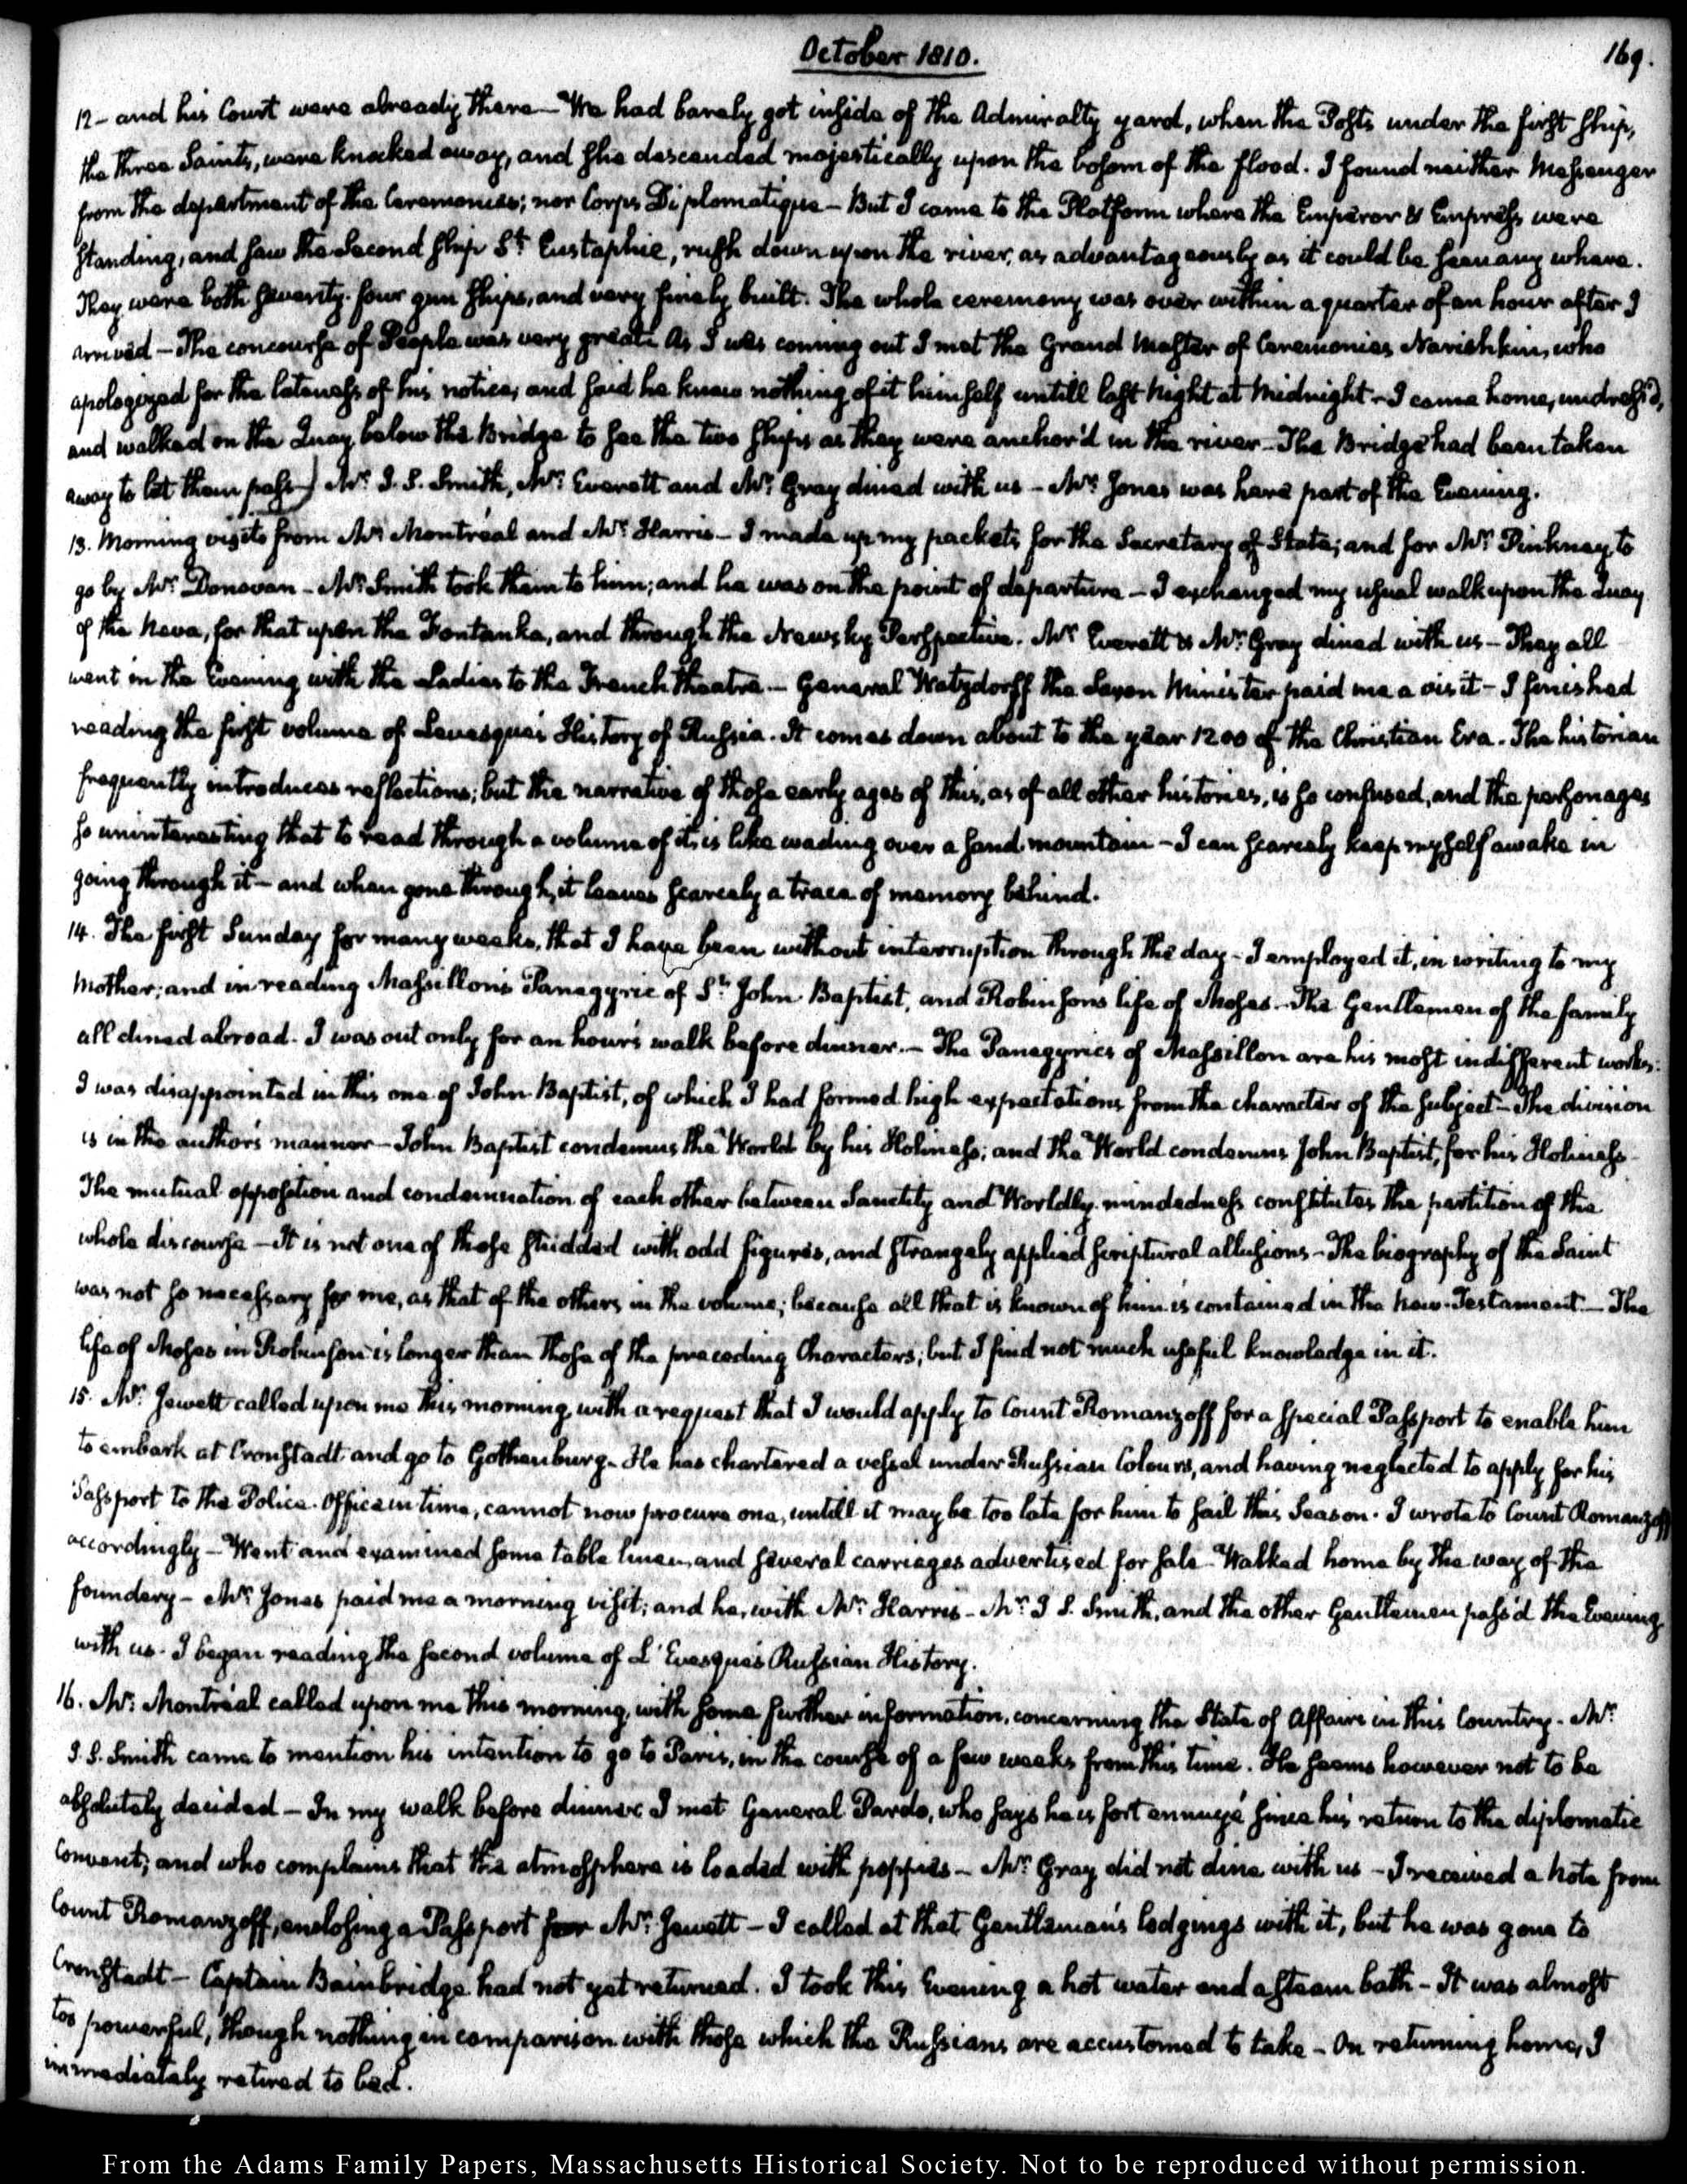 October 1810.
169.
12 - and his Court were already there — We had barely got inside of the Admiralty yard, when the Posts under the first ship,
the three Saints, were knocked away, and she descended majestically upon the bosom of the flood. I found neither Messenger
from the department of the Ceremonies; nor Corps Diplomatique — But I came to the Platform where the Emperor & Empress were
standing, and saw the second ship St. Eustaphie, rush down upon the river, as advantageously as it could be seen any where.
They were both seventy-four gun ships, and very finely built. The whole ceremony was over within a quarter of an hour after I
arrived — The concourse of People was very great. As I was coming out I met the Grand Master of Ceremonies Narishkin, who
apologized for the lateness of his notice, and said he knew nothing of it himself untill last night at Midnight - I came home, undress'd,
and walked on the Quay below the Bridge to see the two ships as they were anchor'd in the river — The Bridge had been taken
away to let them pass) Mr. J. S. Smith, Mr. Everett and Mr. Gray dined with us — Mr. Jones was here part of the Evening.
13. Morning visits from Mr. Montréal and Mr. Harris — I made up my packets for the Secretary of State; and for Mr. Pinkney to
go by Mr. Donovan — Mr. Smith took them to him; and he was on the point of departure — I exchanged my usual walk upon the Quay
of the Neva, for that upon the Fontanka, and through the Newsky Perspective. Mr. Everett & Mr. Gray dined with us — They all
went in the Evening with the Ladies to the French theatre — General Watzdorff the Saxon Minister paid me a visit — I finished
reading the first volume of Levesque's History of Russia. It comes down about to the year 1200 of the Christian Era. The historian
frequently introduces reflections; but the narrative of those early ages of this, as of all other histories, is so confused, and the personages
so uninteresting that to read through a volume of it, is like wading over a sand mountain — I can scarcely keep myself awake in
going through it — and when gone through, it leaves scarcely a trace of memory behind.
14. The first Sunday for many weeks, that I have been without interruption through the day — I employed it, in writing to my
Mother; and in reading Massillon's Panegyric of St. John Baptist, and Robinson's life of Moses. The Gentlemen of the family
all dined abroad. I was out only for an hour's walk before dinner. — The Panegyrics of Massillon are his most indifferent works:
I was disappointed in this one of John Baptist, of which I had formed high expectations from the character of the subject — The division
is in the author's manner — John Baptist condemns the World by his Holiness; and the World condemns John Baptist, for his Holiness
The mutual opposition and condemnation of each other between Sanctity and Worldly-mindedness constitutes the partition of the
whole discourse — It is not one of those studded with odd figures, and strangely applied scriptural allusions — The biography of the Saint
was not so necessary for me, as that of the others in the volume; because all that is known of him is contained in the New-Testament. — The
life of Moses in Robinson is longer than those of the preceding Characters; but I find not much useful knowledge in it.
15. Mr. Jewett called upon me this morning, with a request that I would apply to Count Romanzoff for a special Passport to enable him
to embark at Cronstadt and go to Gothenburg. He has chartered a vessel under Russian Colours, and having neglected to apply for his
Passport to the Police-Office in time, cannot now procure one, untill it may be too late for him to sail this Season. I wrote to Count Romanzoff
accordingly — Went and examined some table linen, and several carriages advertised for sale — Walked home by the way of the
foundery — Mr. Jones paid me a morning visit; and he, with Mr. Harris — Mr. J S. Smith, and the other Gentlemen pass'd the Evening
with us. I began reading the second volume of L'Evesque's Russian History.
16. Mr. Montréal called upon me this morning, with some further information, concerning the State of Affairs in this Country. Mr.
J. S. Smith came to mention his intention to go to Paris, in the course of a few weeks from this time. He seems however not to be
absolutely decided — In my walk before dinner I met General Pardo, who says he is fort ennuyé since his return to the diplomatic
Convent; and who complains that the atmosphere is loaded with poppies — Mr. Gray did not dine with us — I received a Note from
Count Romanzoff, enclosing a Passport for Mr. Jewett — I called at that Gentleman's lodgings with it, but he was gone to
Cronstadt — Captain Bainbridge had not yet returned. I took this Evening a hot water and a steam bath — It was almost
too powerful, though nothing in comparison with those which the Russians are accustomed to take — On returning home, I
immediately retired to bed.
From the Adams Family Papers, Massachusetts Historical Society. Not to be reproduced without permission.